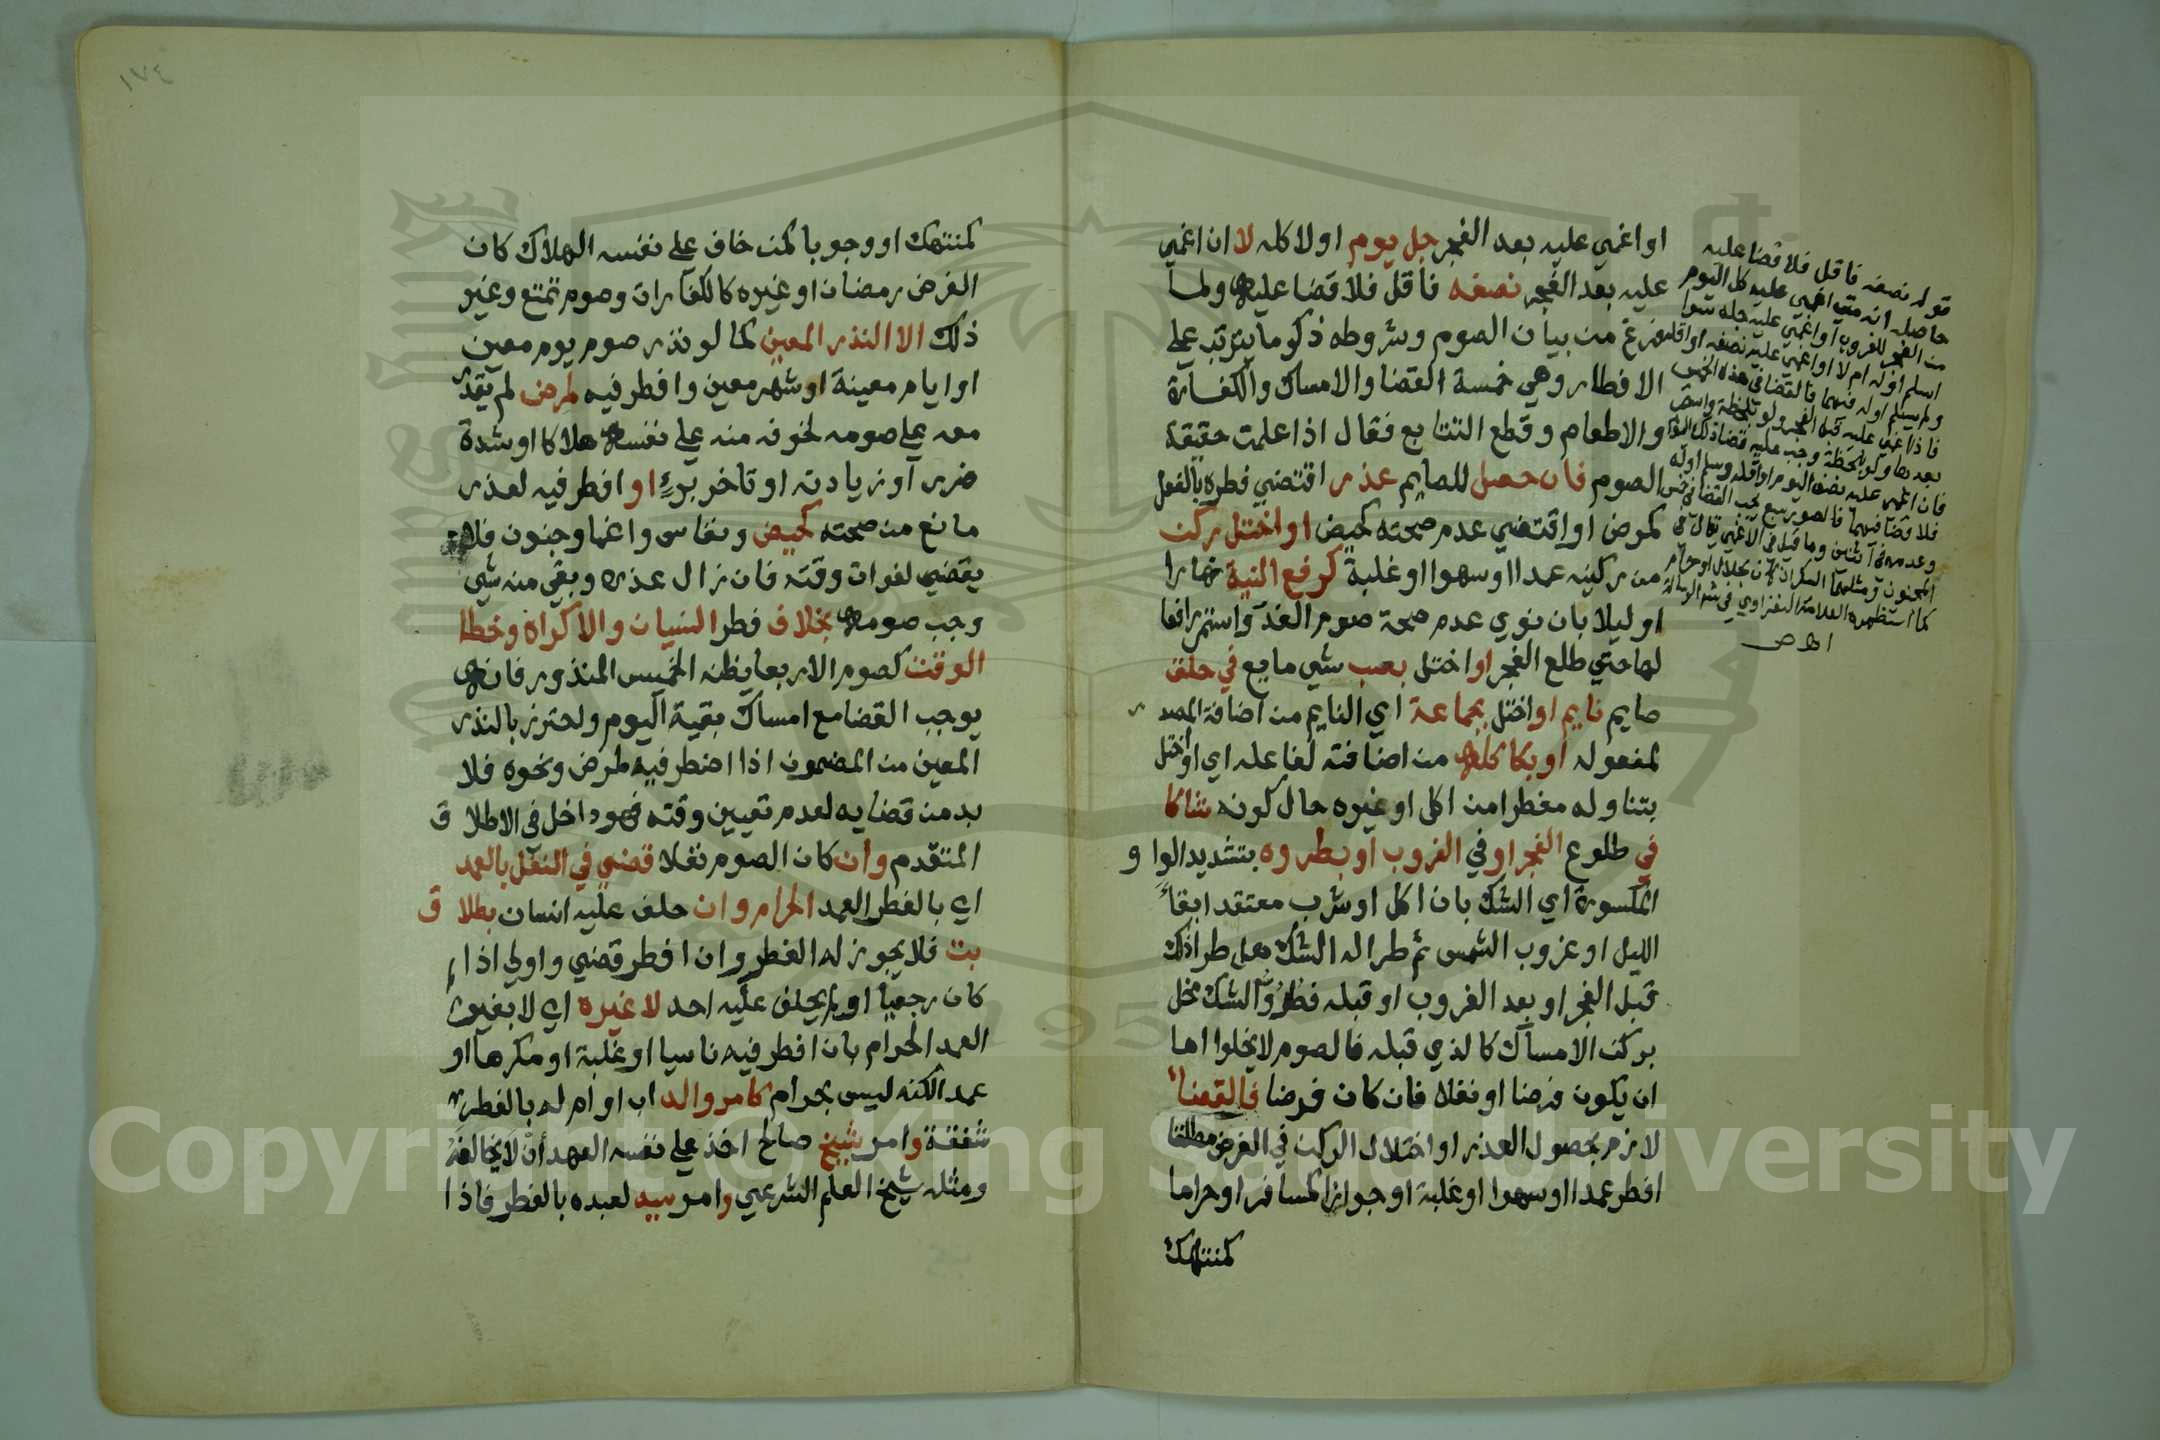 او اغمي عليه بعد الفجر جل يوم او لا كله لا ان اغمي
عليه بعد الفجر نصفه فاقل فلا قضا عليه ولما
فرغ من بيان الصوم وشروطه ذكر ما يترتب علي
الافطار وهي خمسة القضا والامساك والكفارة
والاطعام وقطع التتابع فقال اذا علمت حقيقة
الصوم فان حصل للصايم عذر اقتضي فطره بالفعل
كمرض او اقتضي عدم صحته كحيض او اختل ركن
من ركنيه عمدا او سهوا او غلبة كرفع النية نهارا
او ليلا بان نوي عدم صحة صوم الغد واستمر رافعا
لها حتي طلع الفجر او اختل بصب شي مايع في حلق
صايم نايم او اختل بجماعه اي النايم من اضافة المصدر
لمفعوله او بكاكله من اضافته لفاعله اي او اختل
بتناوله مفطرا من اكل او غيره حال كونه شاكا
في طلوع الفجر او في الغروب او بطروه بتشديد الواو
المكسورة اي الشك بان اكل او شرب معتقدا بقاء
الليل او غروب الشمس ثم طرا له الشك هل طرا ذلك
قبل الفجر او بعد الغروب او قبله فطرو الشك مخل
بركن الامساك كالذي قبله فالصوم لا يخلوا اما
ان يكون فرضا او نفلا فان كان فرضا فالقضاء
لازم بحصول العذر او اختلال الركن في الفرض مطلقا
افطر عمدا او سهوا او غلبة او جوازا كمسافر او حراما
كمنتهك
قوله نصفه فاقل فلا قضا عليه
حاصله انه متي اغمي عليه كل اليوم
من الفجر للغروب او اغمي عليه جله سوا
اسلم اوله ام لا او اغمي عليه نصفه او اقله
ولم يسلم اوله فيهما فالقضا في هذه الخمس
فاذا اغمي عليه قبل الفجر ولو بلحظة واستمر
بعدها ولو بلحظة وجب عليه قضا ذلك اليوم
فان اغمي عليه نصف اليوم او اقله وسلم اوله
فلا قضا فيهما فالصور سبع يجب القضا في خمس
وعدمه في اثنين وما قيل في الاغمي يقال في
المجنون ومثلهما السكران كان بحلال او حرام
كما استظهره العلامة النفراوي في شرح الرسالة
اه ص
١٧٤
كمنتهك او وجوبا كمن خاف علي نفسه الهلاك كان
الفرض رمضان او غيره كالكفارات وصوم تمتع وغير
ذلك الا النذر المعين كما لو نذر صوم يوم معين
او ايام معينة او شهر معين وافطر فيه لمرض لم يقدر
معه علي صومه لخوفه منه علي نفسه هلاكا او شدة
ضرر او زيادته او تاخر برء او افطر فيه لعذر
مانع من صحته كحيض ونفاس واغما وجنون فلا
يقضي لفوات وقته فان زال عذره وبقي منه شي
وجب صومه بخلاف فطر النسيان والاكراه وخطا
الوقت كصوم الاربعا يظنه الخميس المنذور فانه
يوجب القضا مع امساك بقية اليوم واحترز بالنذر
المعين من المضمون اذا افطر فيه لمرض ونحوه فلا
بد من قضايه لعدم تعيين وقته فهو داخل في الاطلاق
المتقدم وان كان الصوم نفلا قضي في النفل بالعمد
اي بالفطر العمد الحرام وان حلف عليه انسان بطلاق
بت فلا يجوز له الفطر وان افطر قضي واولي اذا
كان رجعيا او لم يحلف عليه احد لا غيره اي لا بغير
العمد الحرام بان افطر فيه ناسيا او غلبة او مكرها او
عمد الكنه ليس بحرام كامر والد اب او ام له بالفطر
شفقة وامر شيخ صالح اخذ علي نفسه العهد ان لا يخالفه
ومثله شيخ العلم الشرعي وامر سيد لعبده بالفطر فاذا
Copyright © King Saud University
1957